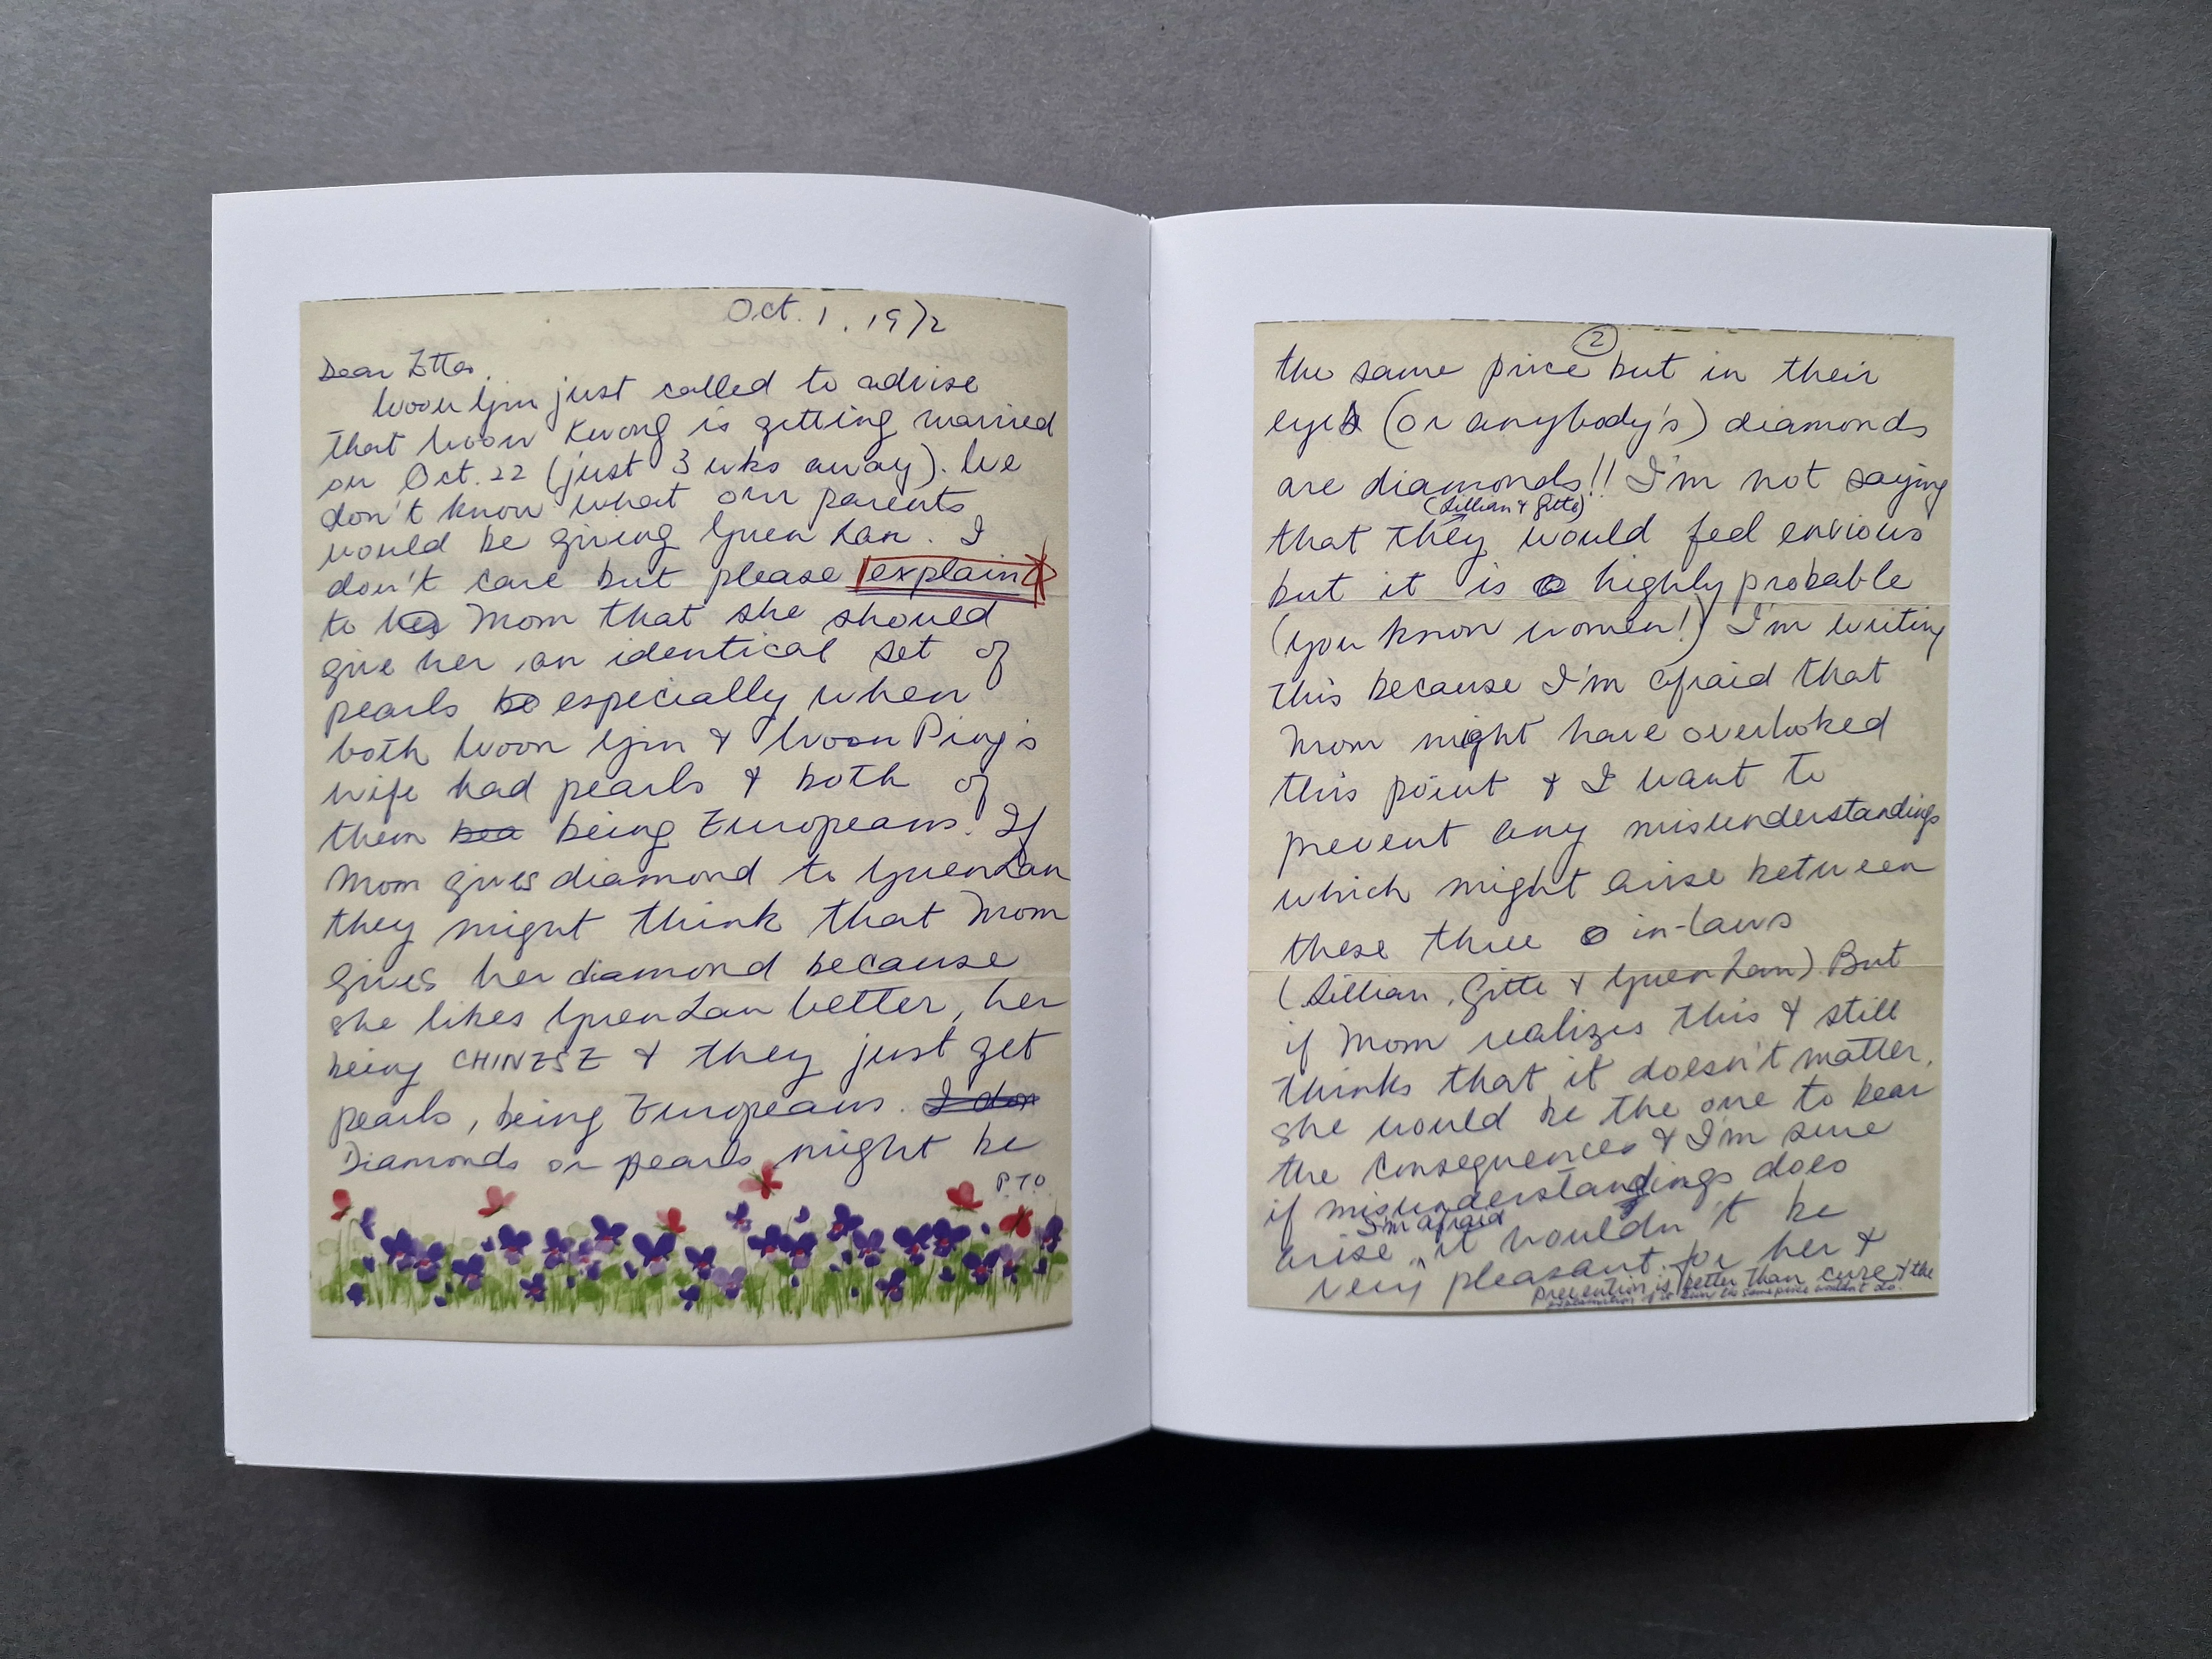 Oct. 1, 1972
Dear Etta,
Woon Yim just called to advise
that Woon Kwong is getting married
on Oct. 22 (just 3 wks away). We
don't know what our parents
would be giving Yuen Lan. I
don't care but please explain
to Mom that she should
give her an identical set of
pearls especially when
both Woon Yim & Woon Ping's
wife had pearls & both of
them being Europeans. If
Mom gives diamond to Yuen Lan
they might think that Mom
gives her diamond because
she likes Yuen Lan better, her
being CHINESE & they just get
pearls, being Europeans. I don
Diamonds or pearls might be
P.T.O.
2
the same price but in their
eyes (or anybody's) diamonds
are diamonds!! I'm not saying
(Lillian & Gitte)
that they would feel envious
but it is highly probable
(you know women!) I'm writing
this because I'm afraid that
Mom might have overlooked
this point & I want to
prevent any misunderstandings
which might arise between
these three in-laws
(Lillian, Gitte & Yuen Lan). But
if Mom realizes this & still
thinks that it doesn't matter,
she would be the one to bear
the consequences & I'm sure
if misunderstandings does
I'm afraid
arise, it wouldn't be
very pleasant for her &
Prevention is better than cure & the
explanation of it being the same price wouldn't do.